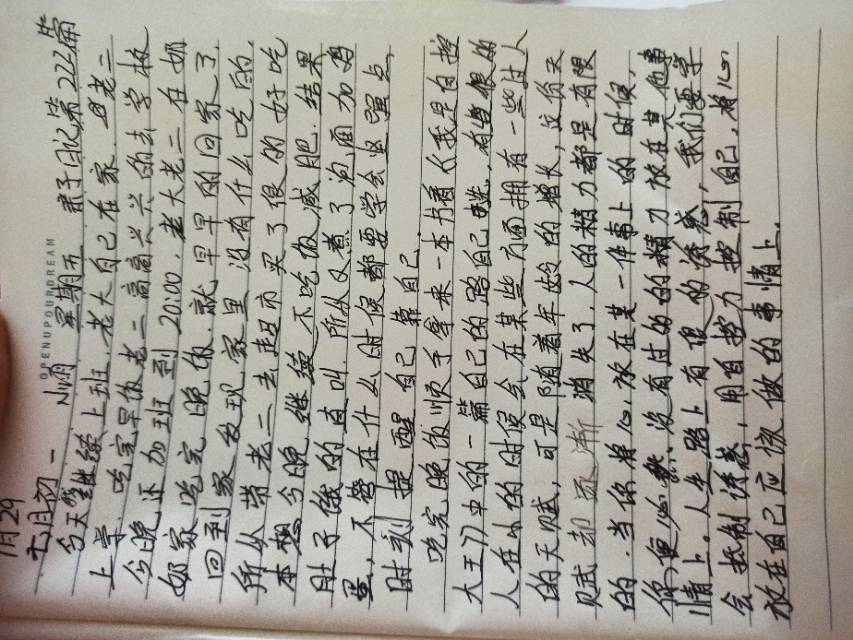 1月29
OPENUPYOURDREAM
七月初一 小雨 星期五 亲子日记第222篇
今天继续上班,老大自己在家,因老二
上学,吃完早饭老二高高兴兴的去学校
今晚还加班到20:00,老大老二在奶
奶家吃完晚饭,就早早的回家了,
回到家发现,家里没有什么吃的,
所以带老二去超市买了很的好吃
本想今晚继续不吃饭减肥,结果
肚子饿的直叫,所以又煮了泡面加鸡
蛋,不管在什么时候都要学会坚强点,
时刻提醒自己靠自己.
吃完晚饭顺手拿来一本书看《我是自控
大王》中的一篇自己的路自己走,有些很的
人在小的时候会在某些方面拥有一些过人
的天赋,可是随着年龄的增长,这份天
赋却逐渐消失了,人的精力都是有限
的,当你将心放在某一件事上的时候,
你便必然没有过的的精力放在其他事
情上。人生路上有很的诱惑,我们要学
会抵制诱惑,用自努力控制自己,将心
放在自己应该做的事情上.